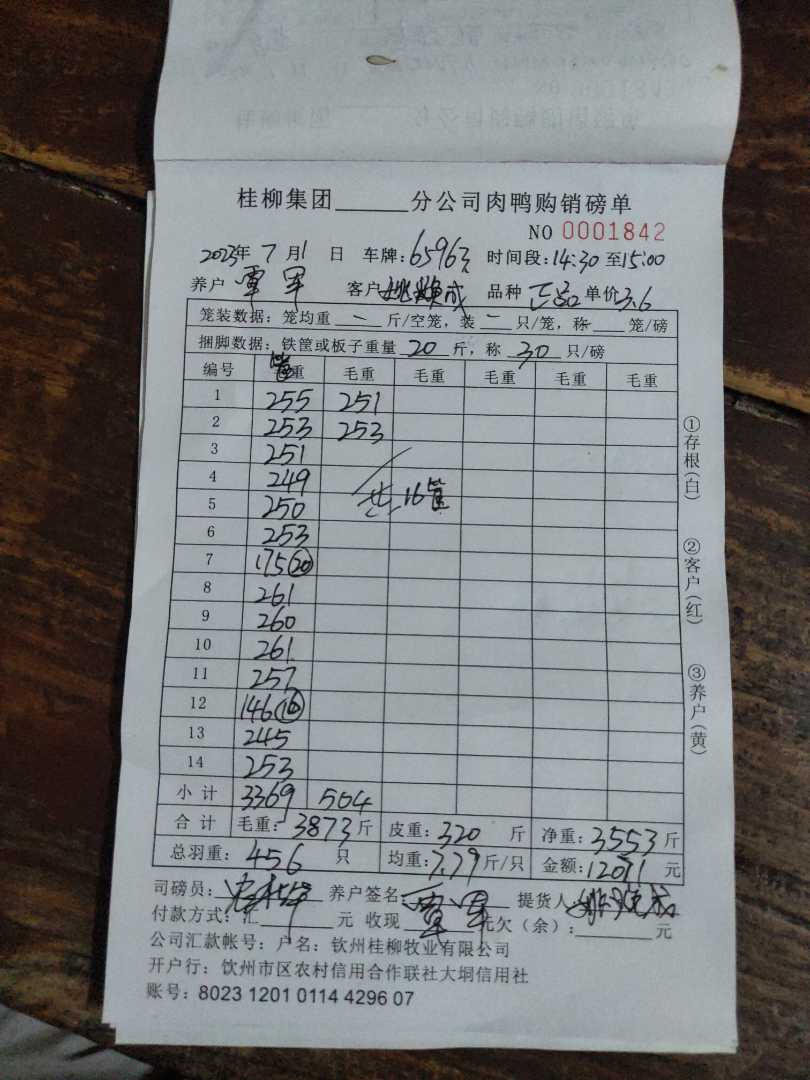 桂柳集团______分公司肉鸭购销磅单
NO 0001842
2023年 7 月 1 日 车牌: 65963 时间段: 14:30 至 15:00
养户 覃军 客户 姚焕成 品种 正品 单价 3.6
笼装数据: 笼均重 — 斤/空笼, 装 — 只/笼, 称 — 笼/磅
捆脚数据: 铁筐或板子重量 20 斤, 称 30 只/磅
编号 毛重 毛重 毛重 毛重 毛重
1 255 251
2 253 253
3 251
4 249
5 250 共16筐
6 253
7 175 20
8 261
9 260
10 261
11 257
12 146 16
13 245
14 253
小计 3369 504
合计 毛重: 3873 斤 皮重: 320 斤 净重: 3553 斤
总羽重: 456 只 均重: 7.79 斤/只 金额: 12011 元
司磅员: 养户签名 覃军 提货人
付款方式: 汇______元 收现______元欠(余):______元
公司汇款帐号: 户名: 钦州桂柳牧业有限公司
开户行: 饮州市区农村信用合作联社大垌信用社
账号: 8023 1201 0114 4296 07
①存根(白)
②客户(红)
③养户(黄)